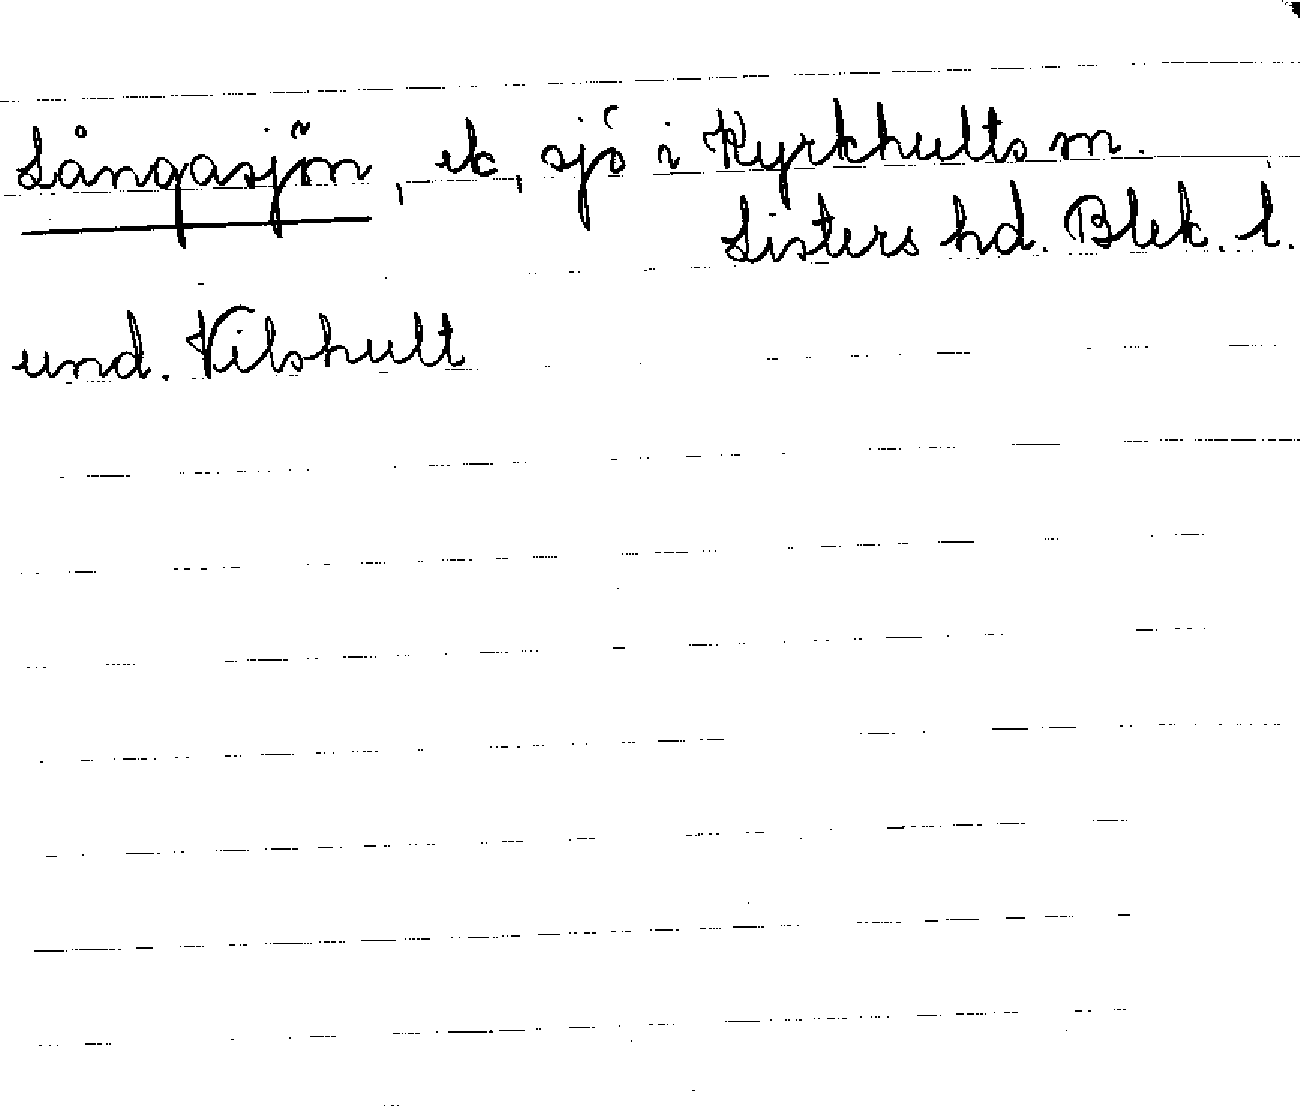 Långasjön, ek, sjö i Kyrkhults m.
Listers hd. Blek. l.
und. Vilshult